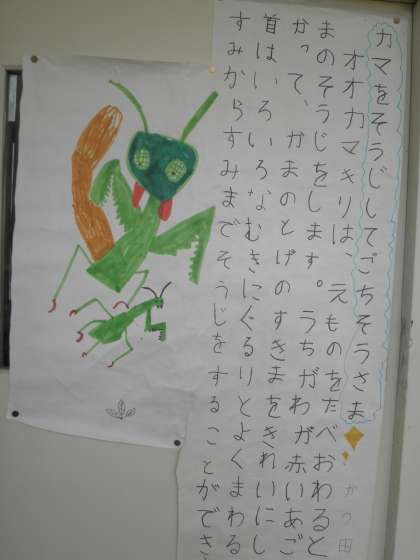 カマをそうじしてごちそうさま
かつ田
オオカマキリは、えものをたべおわると
まのそうじをします。うちがわが赤いあご
かって、かまのとげのすきまをきれいにし
首はいろいろなむきにぐるりとよくまわる
すみからすみまでそうじをすることができ